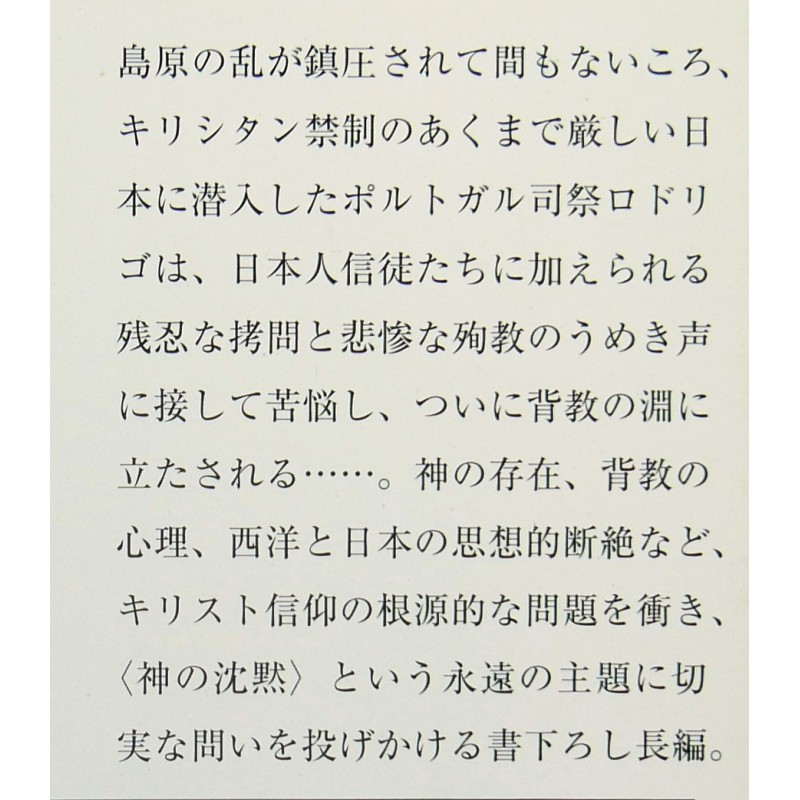 島原の乱が鎮圧されて間もないころ、
キリシタン禁制のあくまで厳しい日
本に潜入したポルトガル司祭ロドリ
ゴは、日本人信徒たちに加えられる
残忍な拷問と悲惨な殉教のうめき声
に接して苦悩し、ついに背教の淵に
立たされる……。神の存在、背教の
心理、西洋と日本の思想的断絶など、
キリスト信仰の根源的な問題を衝き、
〈神の沈黙〉という永遠の主題に切
実な問いを投げかける書下ろし長編。